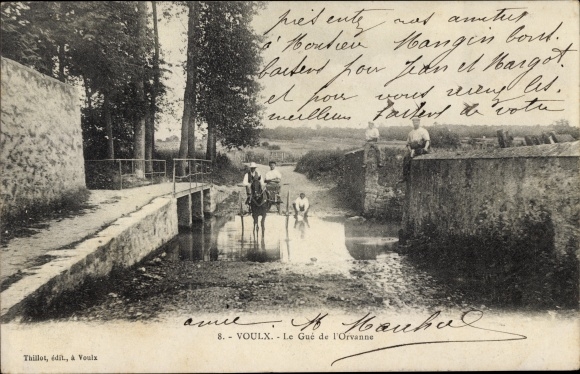 présentez nos amitiés
à Monsieur Mangin bons.
baisers pour Jean et Margot.
et pour vous recevez les
meilleurs baisers de votre
amie M Marchal
8. - VOULX. - Le Gué de l'Orvanne
Thillot, édit., à Voulx